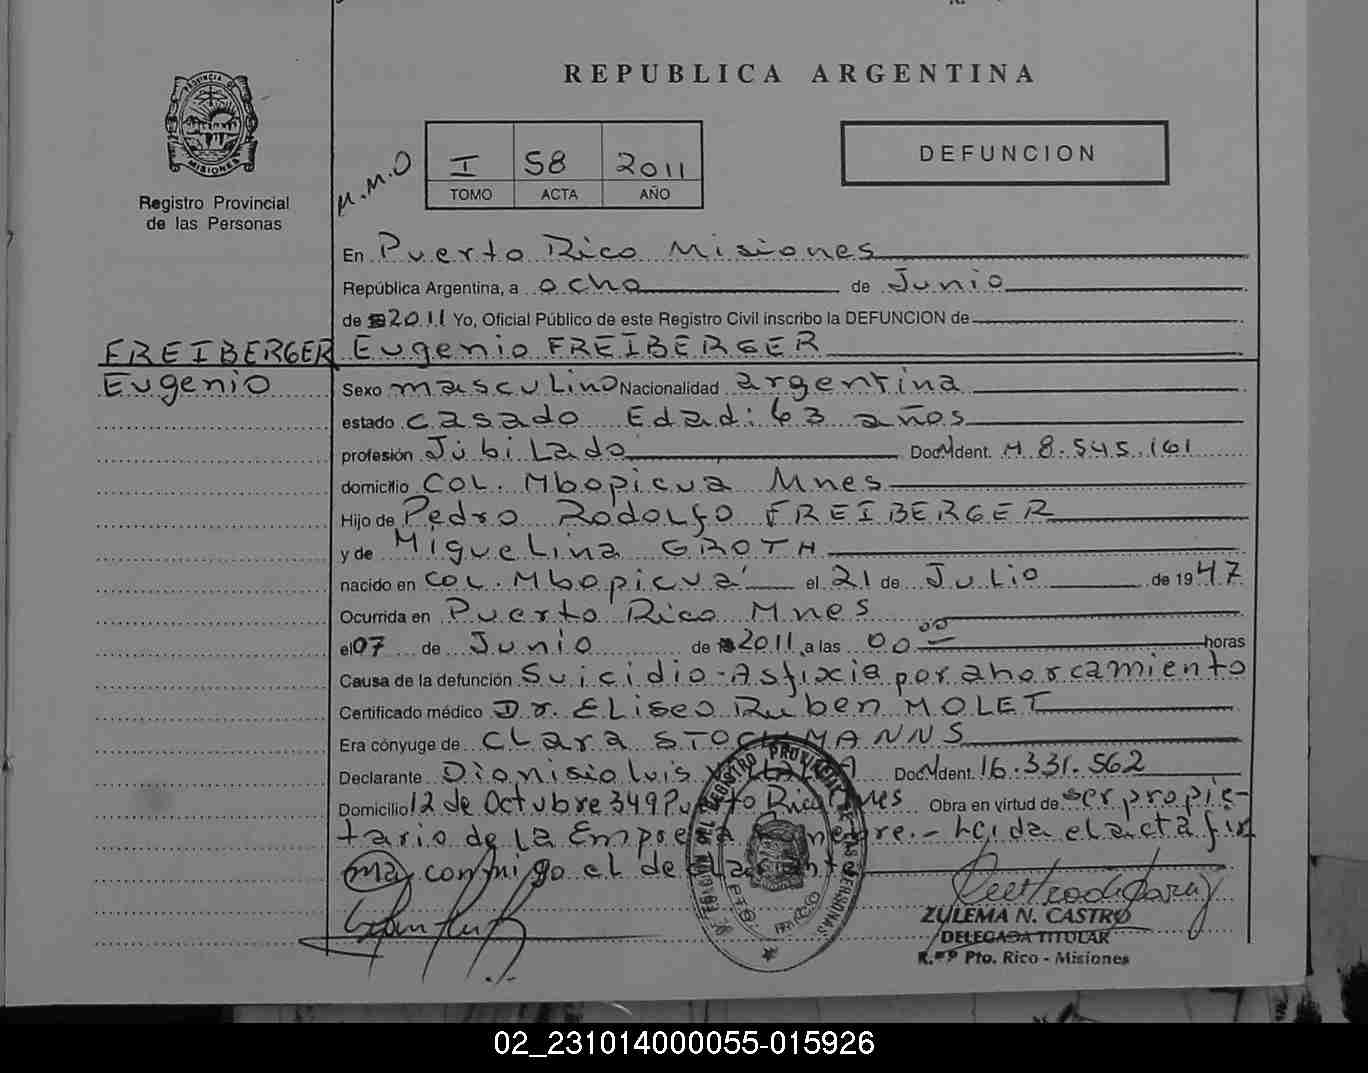 REPUBLICA ARGENTINA
PROVINCIA DE
MISIONES
Registro Provincial
de las Personas
M.M.O
I 58 2011
TOMO ACTA AÑO
DEFUNCION
En Puerto Rico Misiones
República Argentina, a ocho de Junio
de 2011 Yo, Oficial Público de este Registro Civil inscribo la DEFUNCION de
FREIBERGER Eugenio FREIBERGER
Eugenio
Sexo masculino Nacionalidad argentina
estado casado Edad: 63 años
profesión Jubilado Doc. Ident. M 8.545.161
domicilio COL. Mbopicua Mnes
Hijo de Pedro Rodolfo FREIBERGER
y de Miguelina GROTH
nacido en COL. Mbopicuá el 21 de Julio de 1947
Ocurrida en Puerto Rico Mnes
el 07 de Junio de 2011 a las 00 00 horas
Causa de la defunción Suicidio-Asfixia por ahorcamiento
Certificado médico Dr. Eliseo Ruben MOLET
Era cónyuge de Clara STOCKMANNS
Declarante Dionisio Luis Doc. Ident. 16.331.562
Domicilio 12 de Octubre 349 Puerto Rico Mnes Obra en virtud de ser propie-
tario de la Empresa Funebre.- Leida el acta fir
ma conmigo el declarante
REGISTRO PROVINCIAL DE LAS PERSONAS
PTO RICO
ZULEMA N. CASTRO
DELEGADA TITULAR
Pto. Rico - Misiones
02_231014000055-015926